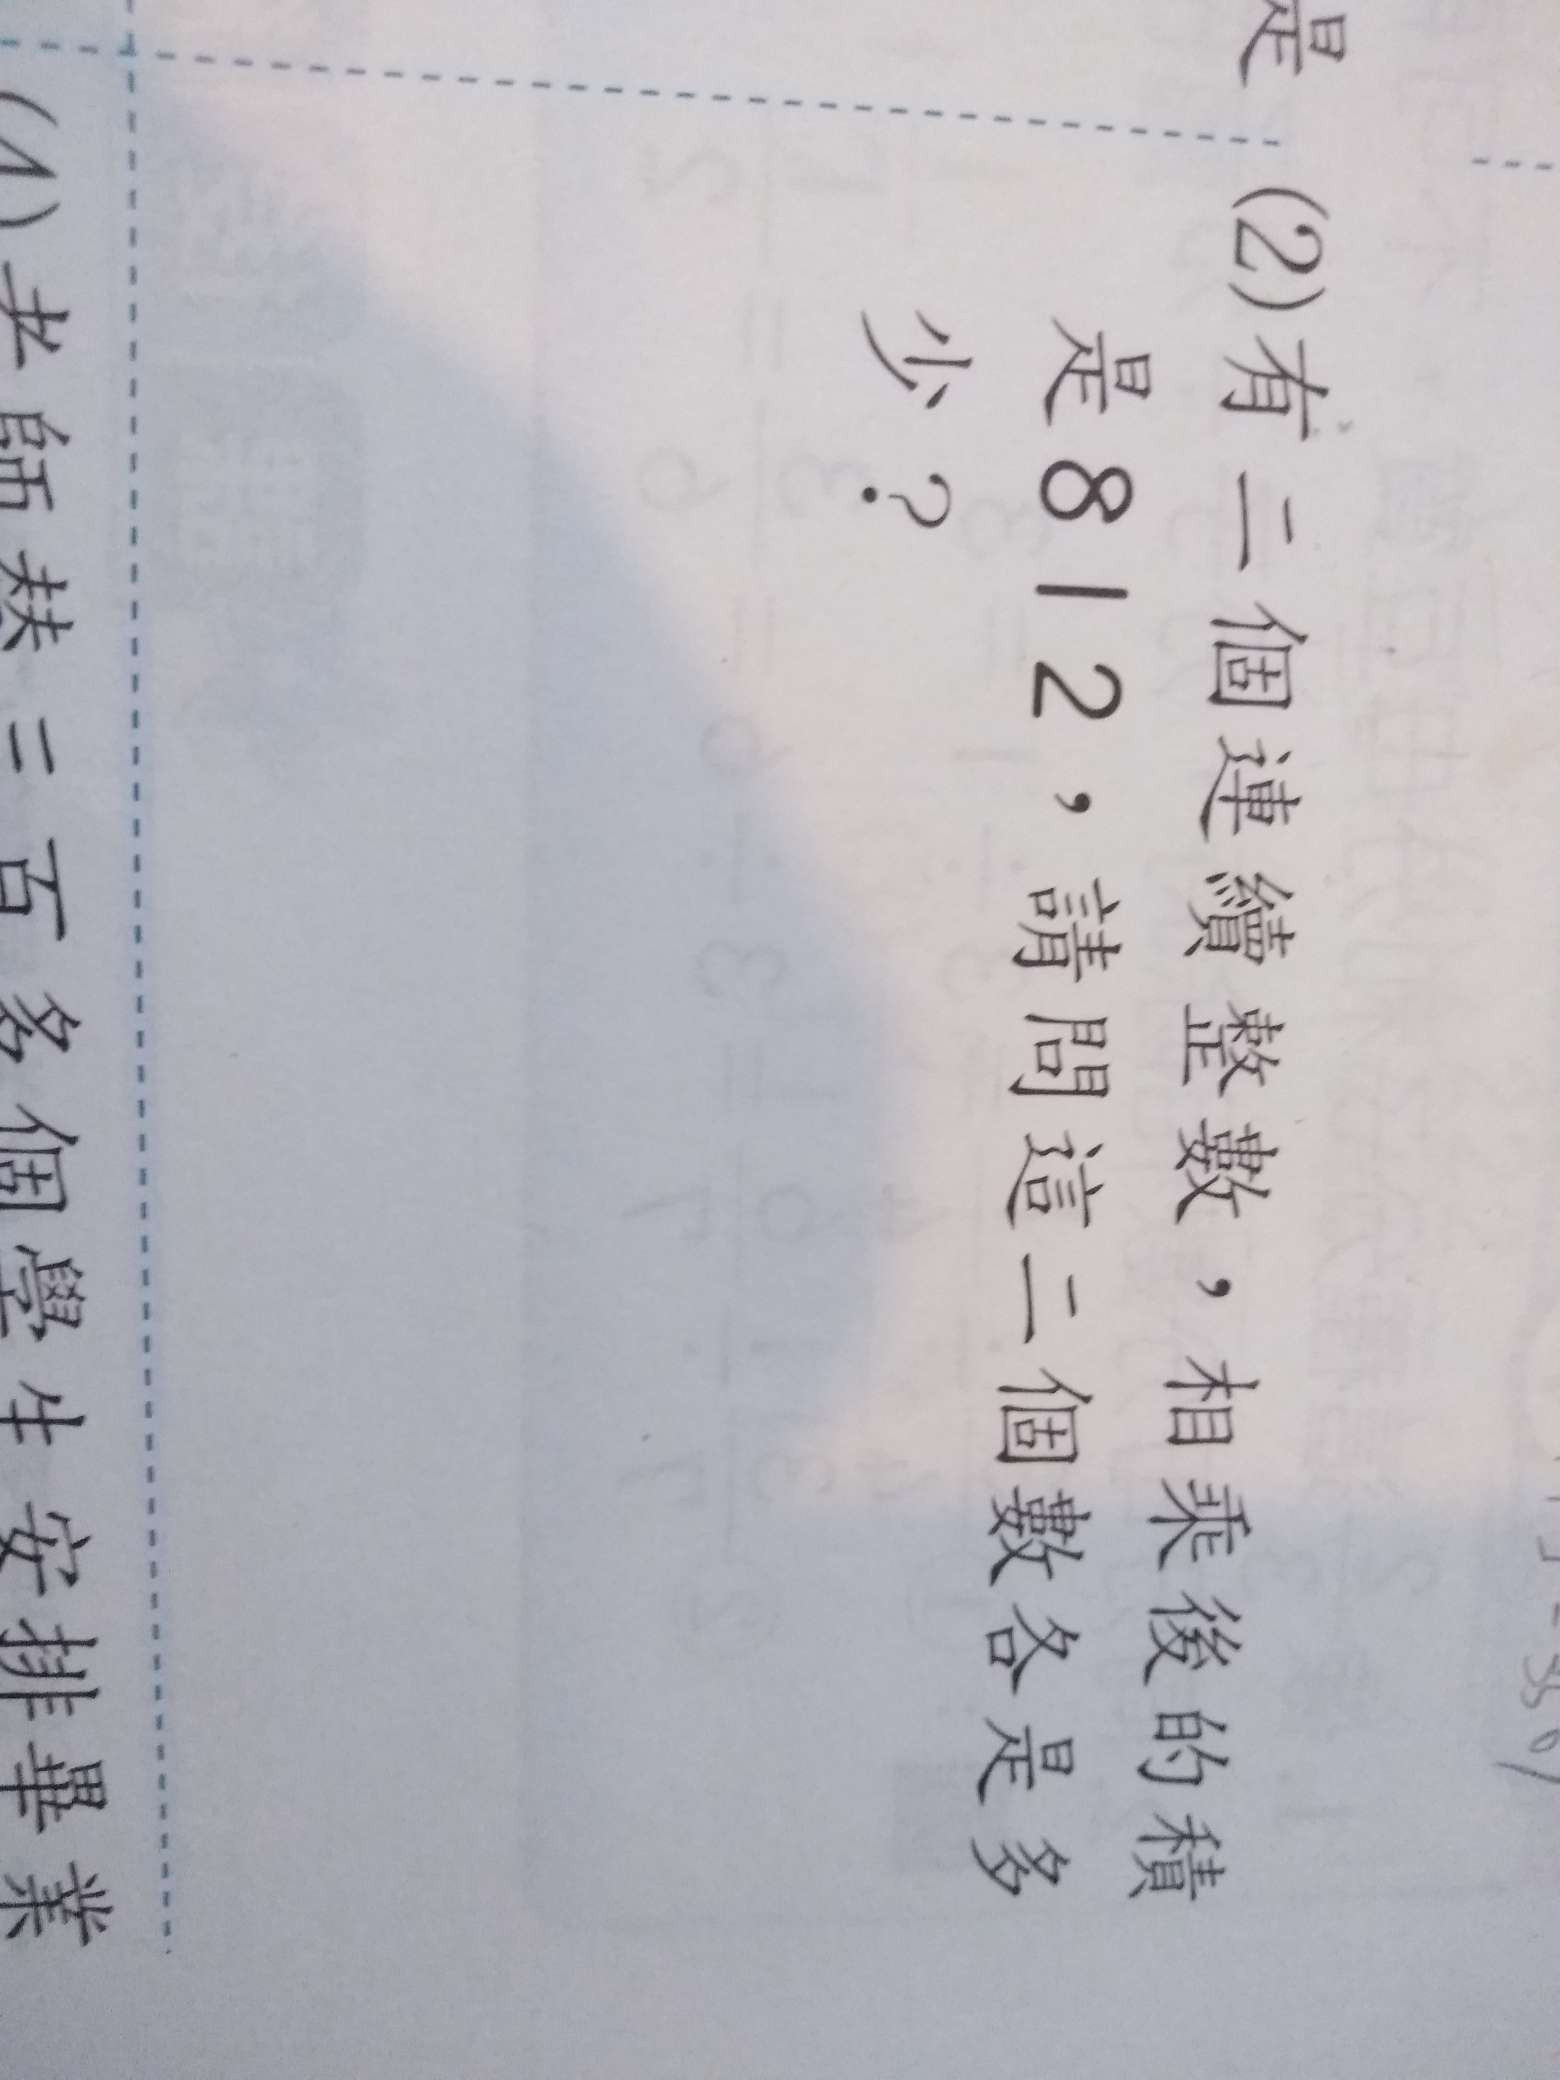 是
(2)有二個連續整數，相乘後的積
是812，請問這二個數各是多
少？
(4)老師替二百多個學生安排畢業